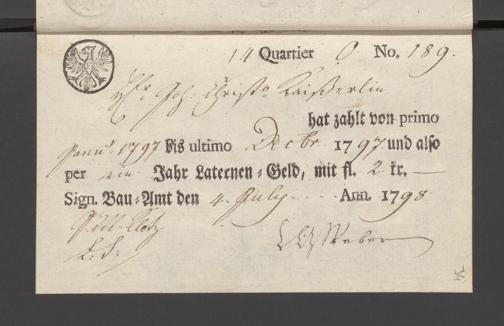 14 Quartier O. No. 189.
Hr. Joh. Christ. Kaißerlin
hat zahlt von primo
Janu. 1797 bis ultimo Decbr. 1797 und also
per ein Jahr Laternen-Geld, mit fl. 2 kr. —
Sign. Bau-Amt den 4. July Ann. 1798.